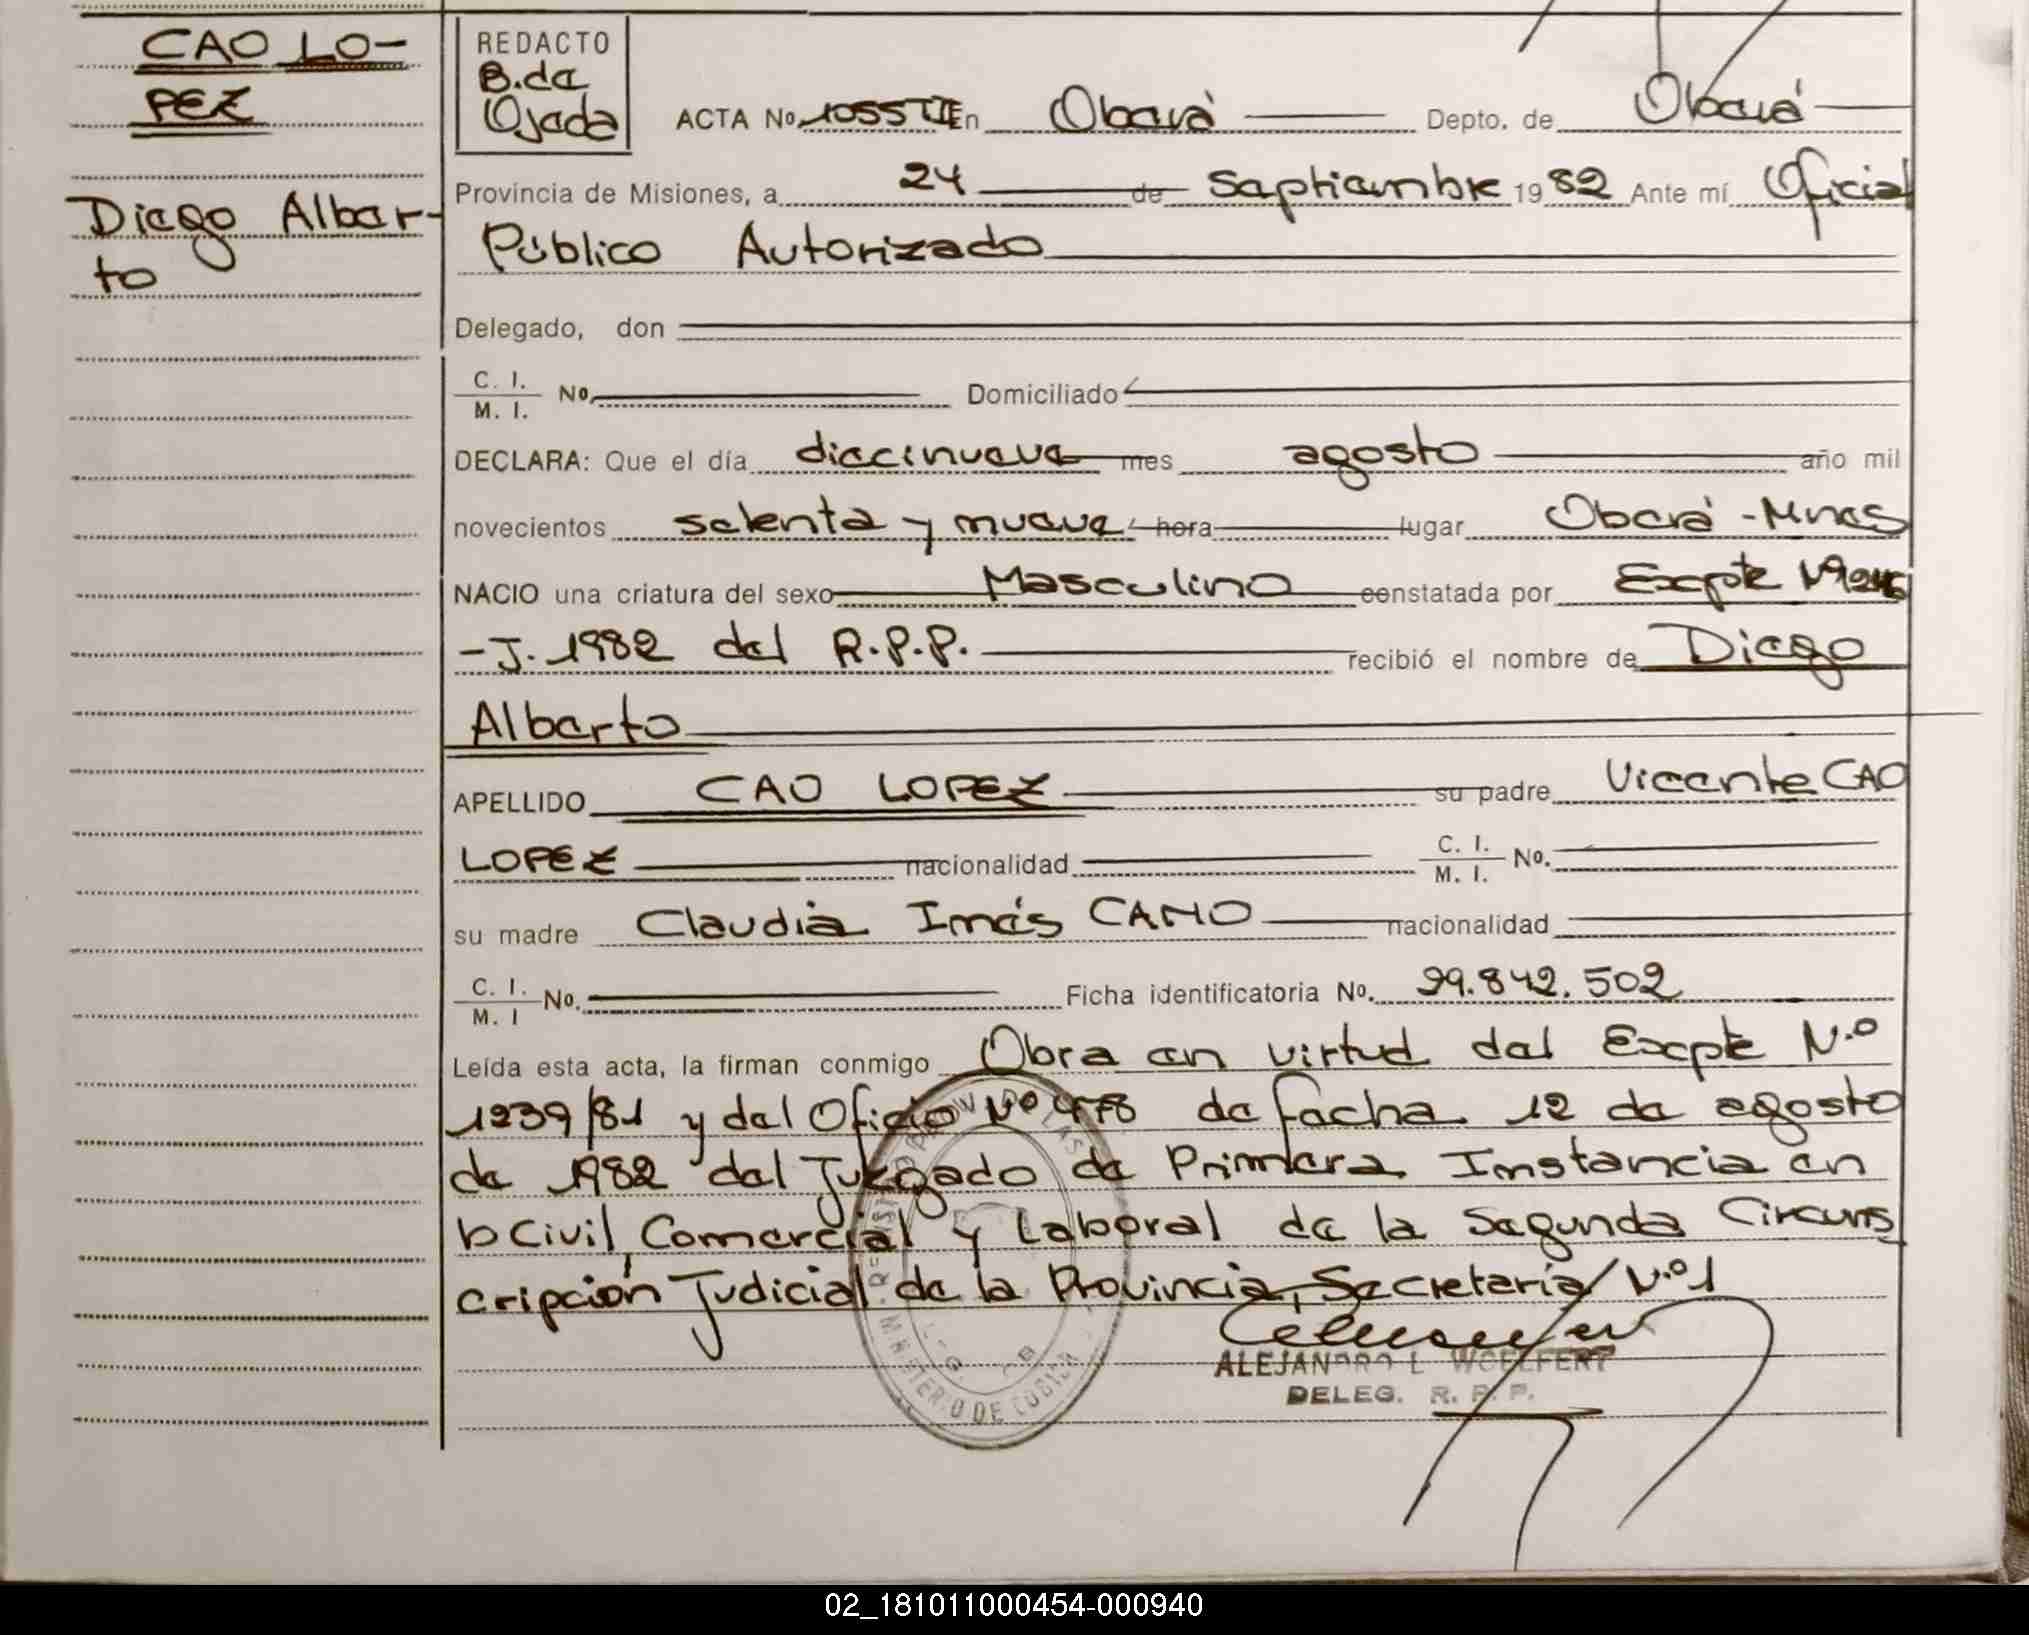 CAO LO-
PEZ
Diego Alber-
to
REDACTO
B.de
Ojeda
ACTA No. 1055 TII En Oberá Depto. de Oberá
Provincia de Misiones, a 24 de Septiembre 1982 Ante mí Oficial
Público Autorizado
Delegado, don
C. I.
M. I. No. Domiciliado
DECLARA: Que el día diecinueve mes agosto año mil
novecientos setenta y nueve hora lugar Oberá - Mnes
NACIO una criatura del sexo Masculino constatada por Expte Nº
-J. 1982 del R.P.P. recibió el nombre de Diego
Alberto
APELLIDO CAO LOPEZ su padre Vicente CAO
LOPEZ nacionalidad C. I. M. I. No.
su madre Claudia Inés CANO nacionalidad
C. I. M. I No. Ficha identificatoria No. 29.842.502
Leída esta acta, la firman conmigo Obra en virtud del Expte N.º
1239/81 y del Oficio Nº 478 de fecha 12 de agosto
de 1982 del Juzgado de Primera Instancia en
lo Civil, Comercial y Laboral de la Segunda Circuns
cripción Judicial de la Provincia, Secretaría N.º 1
ALEJANDRO L. WOELFERT
DELEG. R. P. P.
02_181011000454-000940